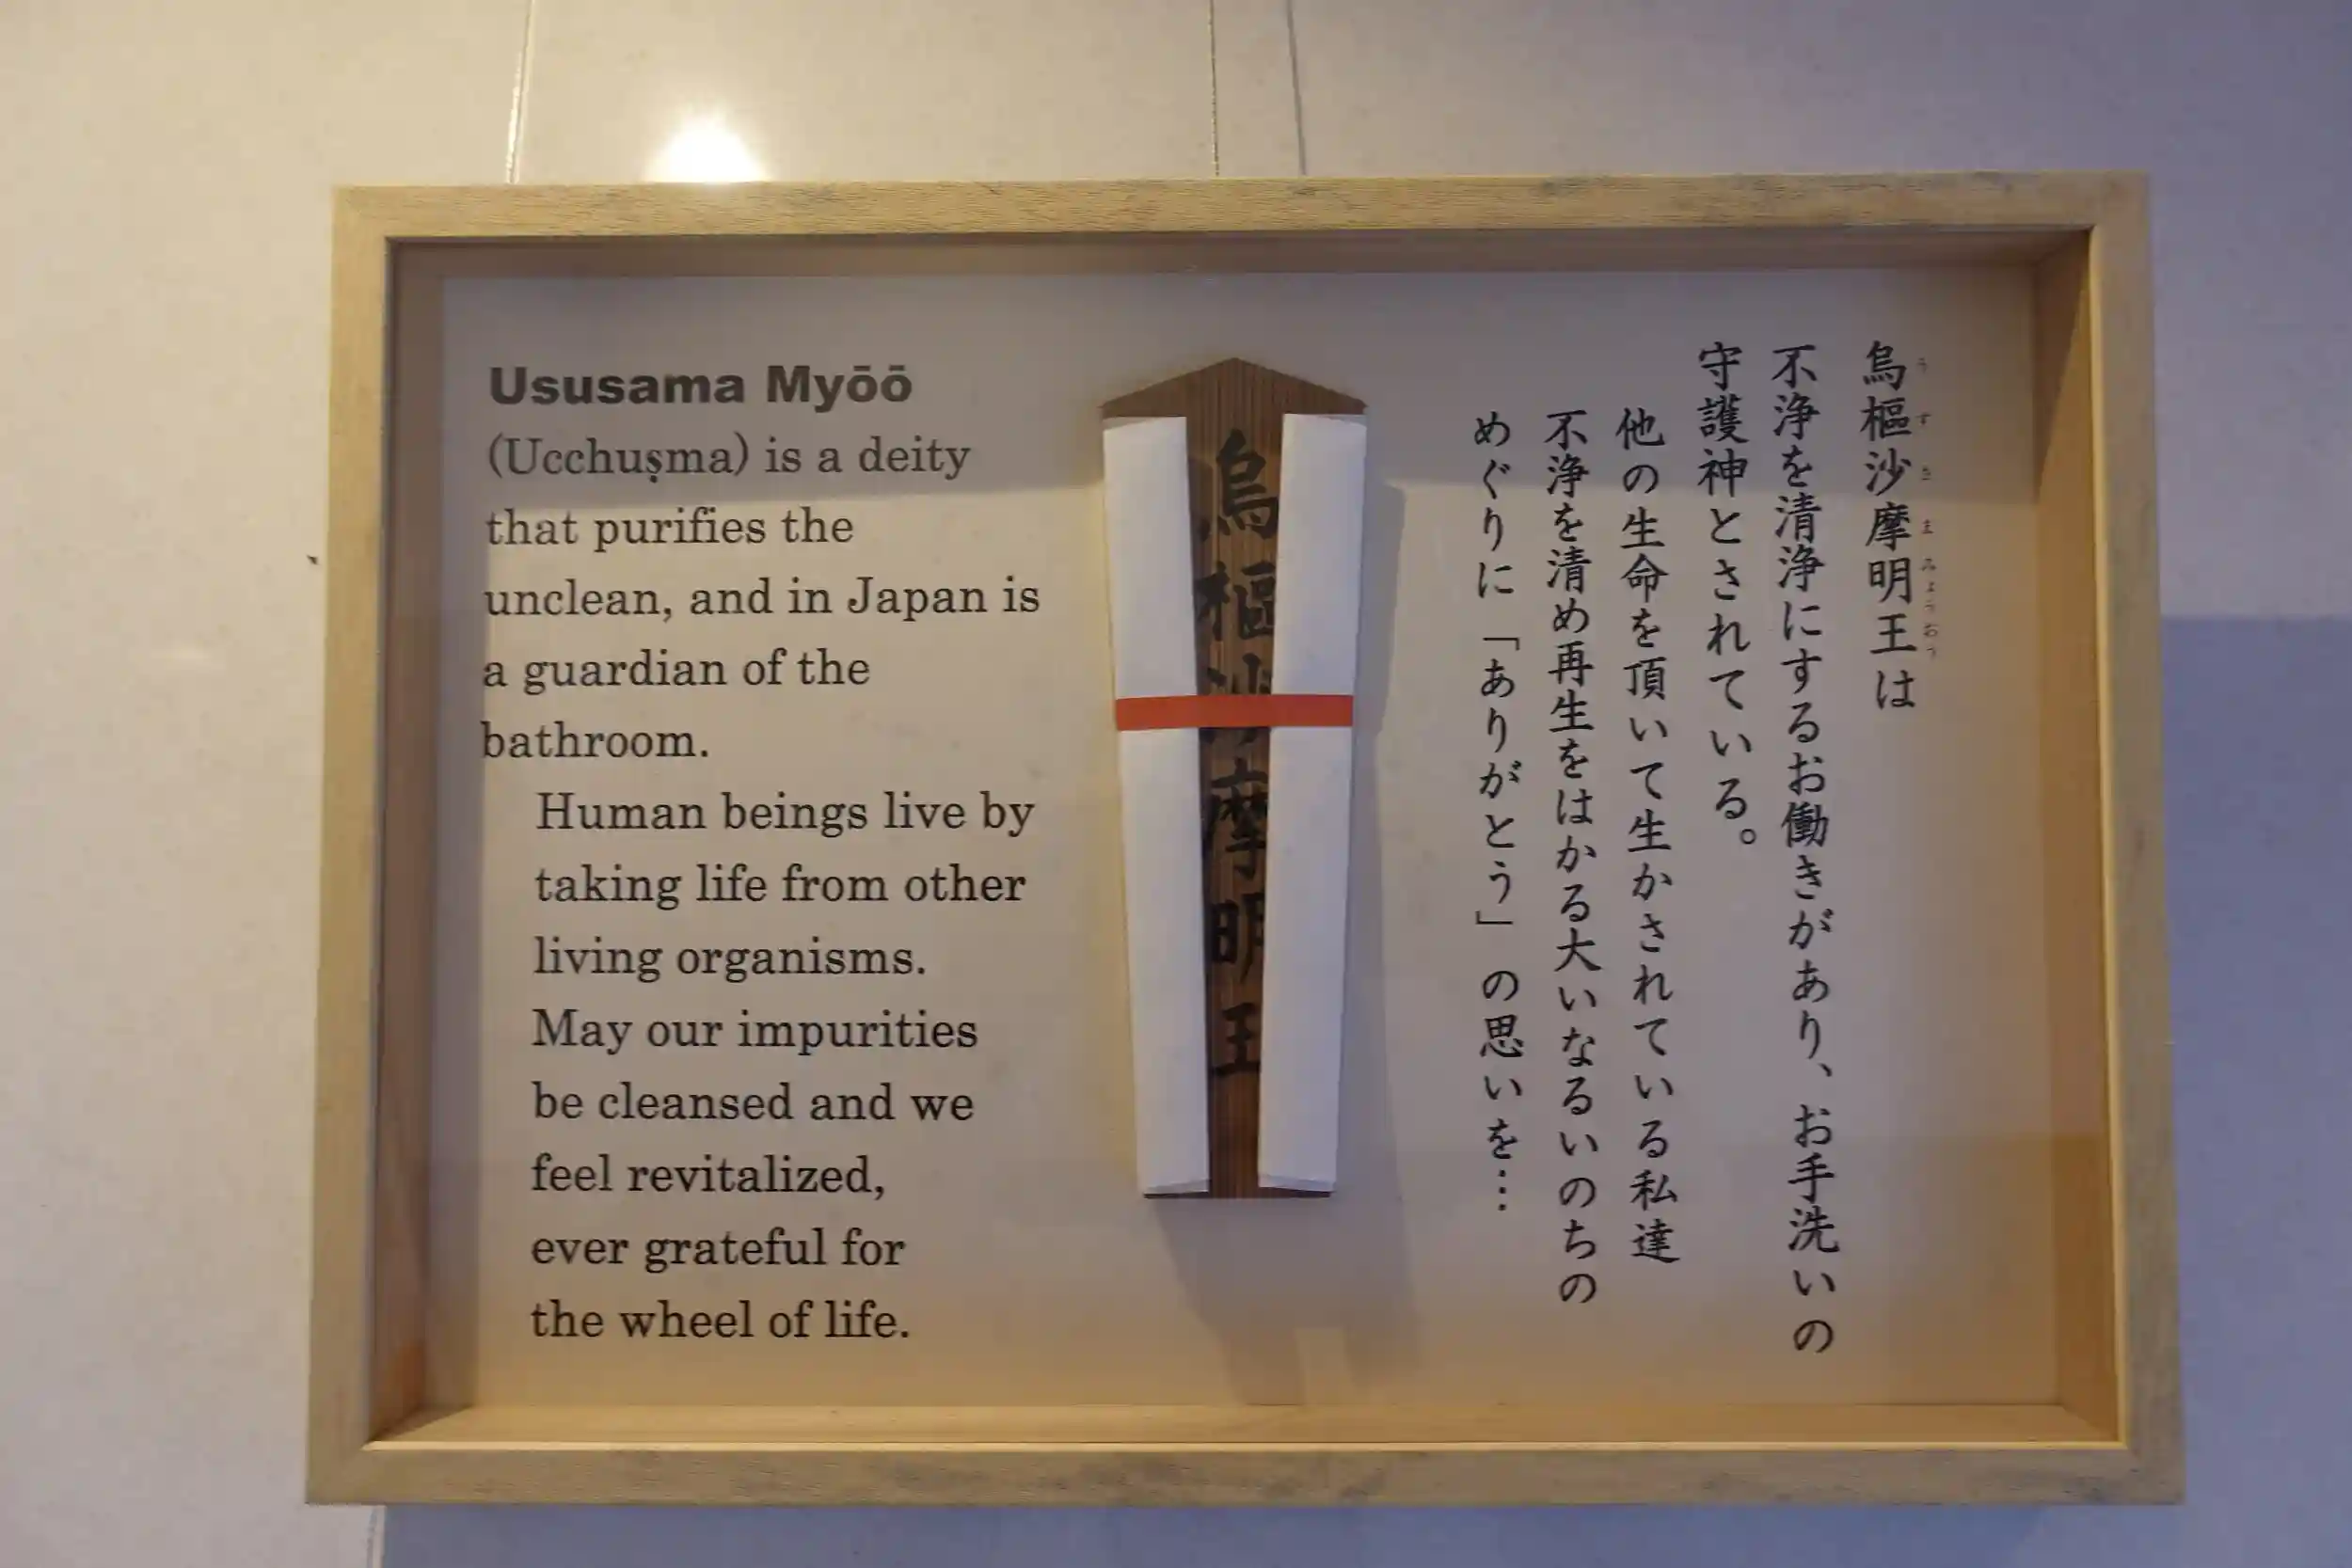 Ususama Myōō
(Ucchuṣma) is a deity
that purifies the
unclean, and in Japan is
a guardian of the
bathroom.
Human beings live by
taking life from other
living organisms.
May our impurities
be cleansed and we
feel revitalized,
ever grateful for
the wheel of life.
烏樞沙摩明王
烏樞沙摩明王は
うすさまみょうおう
不浄を清浄にするお働きがあり、お手洗いの
守護神とされている。
他の生命を頂いて生かされている私達
不浄を清め再生をはかる大いなるいのちの
めぐりに「ありがとう」の思いを…